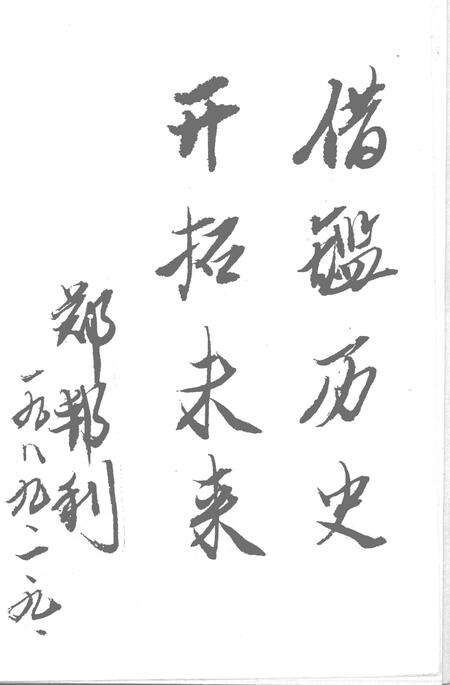 借鑑历史
开拓未来
郑邦利
一九八九、二、九、